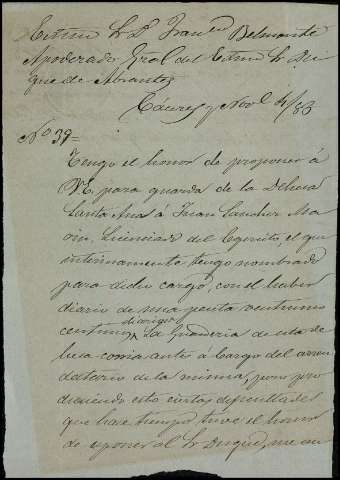 Exmo Sr Dn Franco Belmonte
Apoderado Gral del Exmo Sr Du
que de Abrantes
Caceres y Novbe 4/83
No 39=
Tengo el honor de proponer á
VE. para guarda de la Dehesa
Santa Ana á Juan Sanchez Ma
rin, Licenciado del Egercito el que
interinamente tengo nombrado
para dicho cargo, con el haber
diario de una peseta
centimos La Guarderia de esta de
hesa corria antes á cargo del arren
datario de la misma, pero pro
duciendo esto ciertas dificultades
que hace tiempo tuve el honor
de esponer al Sr Duque, me au